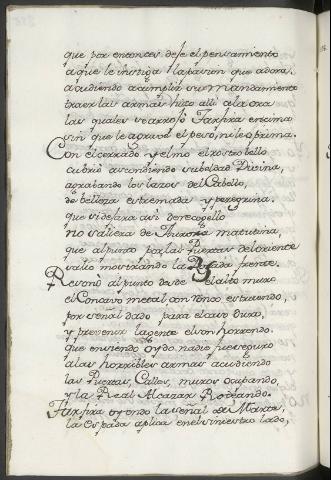 que por entonces deje el pensamiento
a que le instiga la pasion que adora.
acudiendo a cumplir su mandamiento
traer las armas hizo alli a la ora
las quales se arrojó Farfira encima
sin que le agrave el peso, ni le oprima.
Con el cerrado yelmo el rostro bello
cubrió ascondiendo su beldad Divina,
agrabando los lazos del Cabello,
de belleza estremada y peregrina.
que si dejara asi de recogello
no saliera de Aurora matutina,
que al punto por las Puertas del oriente
salio mostrando la Rosada frente.
Resonó al punto desde el alto muro
el Concavo metal con ronco estruendo,
por señal dado para el caso duro,
y prevenir la gente el son horrendo.
que en siendo oydo nadie fue seguro
a las horribles armas acudiendo
las Puertas, Calles, muros ocupando,
y la Real Alcazar Rodeando.
Farfira oyendo la señal de Marte,
la espada aplica en el siniestro lado,